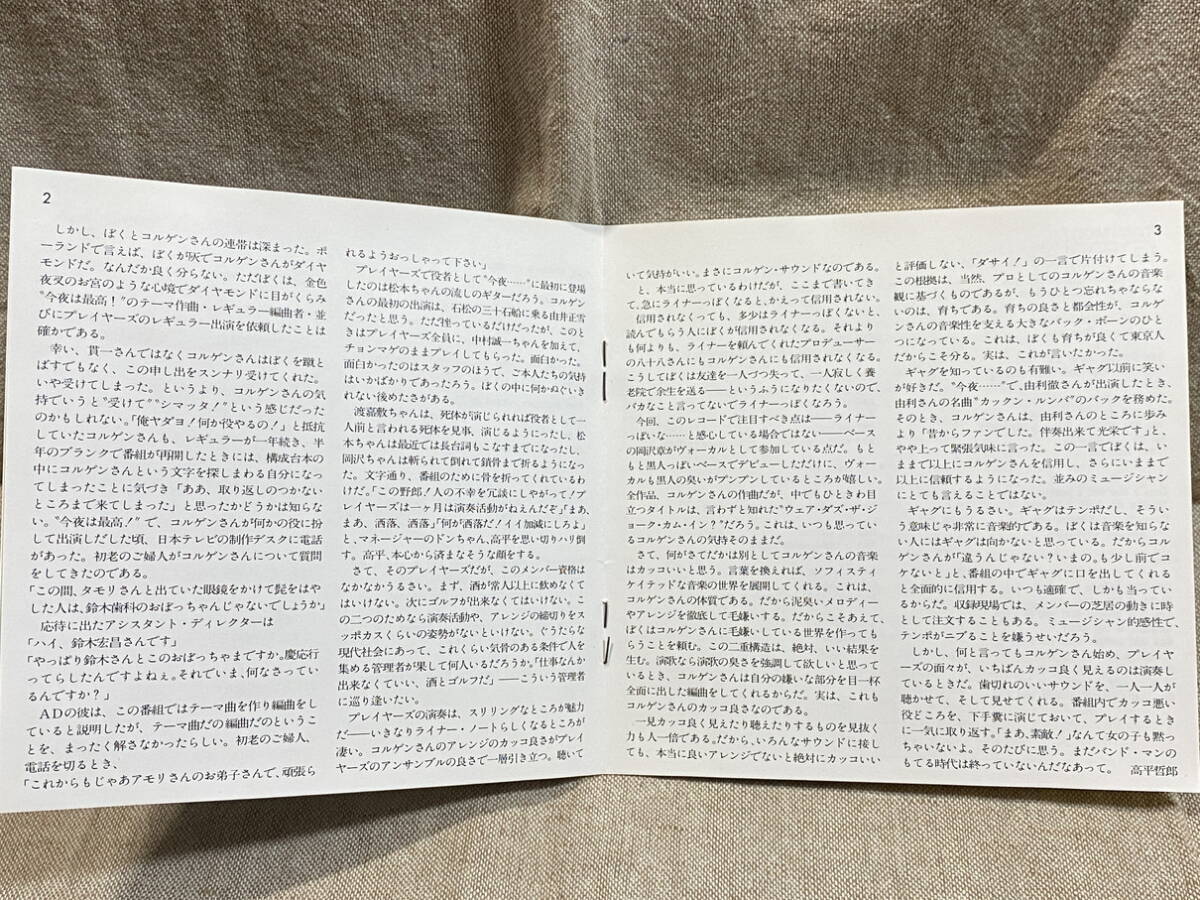 2
しかし、ぼくとコルゲンさんの連帯は深まった。ポ
ーランドで言えば、ぼくが灰でコルゲンさんがダイヤ
モンドだ。なんだか良く分らない。ただぼくは、金色
夜叉のお宮のような心境でダイヤモンドに目がくらみ
“今夜は最高！”のテーマ作曲・レギュラー編曲者・並
びにプレイヤーズのレギュラー出演を依頼したことは
確かである。
幸い、貫一さんではなくコルゲンさんはぼくを蹴と
ばすでもなく、この申し出をスンナリ受けてくれた。
いや受けてしまった。というより、コルゲンさんの気
持でいうと“受けて”“シマッタ！”という感じだった
のかもしれない。「俺ヤダヨ！何か役やるの！」と抵抗
していたコルゲンさんも、レギュラーが一年続き、半
年のブランクで番組が再開したときには、構成台本の
中にコルゲンさんという文字を探しまわる自分になっ
てしまったことに気づき「ああ、取り返しのつかない
ところまで来てしまった」と思ったかどうかは知らな
い。“今夜は最高！”で、コルゲンさんが何かの役に扮
して出演しだした頃、日本テレビの制作デスクに電話
があった。初老のご婦人がコルゲンさんについて質問
をしてきたのである。
「この間、タモリさんと出ていた眼鏡をかけて髭をはや
した人は、鈴木歯科のおぼっちゃんじゃないでしょうか」
応待に出たアシスタント・ディレクターは
「ハイ、鈴木宏昌さんです」
「やっぱり鈴木さんとこのおぼっちゃまですか。慶応行
ってらしたんですよねぇ。それでいま、何なさってい
るんですか？」
ＡＤの彼は、この番組ではテーマ曲を作り編曲をし
ていると説明したが、テーマ曲だの編曲だのというこ
とを、まったく解さなかったらしい。初老のご婦人、
電話を切るとき、
「これからもじゃあアモリさんのお弟子さんで、頑張ら
れるようおっしゃって下さい」
プレイヤーズで役者として“今夜……”に最初に登場
したのは松本ちゃんの流しのギターだろう。コルゲン
さんの最初の出演は、石松の三十石船に乗る由井正雪
だったと思う。ただ座っているだけだったが、このと
きはプレイヤーズ全員に、中村誠一ちゃんを加えて、
チョンマゲのままプレイしてもらった。面白かった。
面白かったのはスタッフのほうで、ご本人たちの気持
はいかばかりであったろう。ぼくの中に何かぬぐいき
れない後めたさがある。
渡嘉敷ちゃんは、死体が演じられれば役者として一
人前と言われる死体を見事、演じるようにったし、松
本ちゃんは最近では長台詞もこなすまでになったし、
岡沢ちゃんは斬られて倒れて鎖骨まで折るようになっ
た。文字通り、番組のために骨を折ってくれているわ
けだ。「この野郎！人の不幸を冗談にしやがって！プ
レイヤーズは一ヶ月は演奏活動がねえんだぞ」「まあ、
まあ、洒落、洒落」「何が洒落だ！イイ加減にしろよ」
と、マネージャーのドンちゃん、高平を思い切りハリ倒
す。高平、本心から済まなそうな顔をする。
さて、そのプレイヤーズだが、このメンバー資格は
なかなかうるさい。まず、酒が常人以上に飲めなくて
はいけない。次にゴルフが出来なくてはいけない。こ
の二つのためなら演奏活動や、アレンジの締切りをス
ッポカスくらいの姿勢がないといけない。ぐうたらな
現代社会にあって、これくらい気骨のある条件で人を
集める管理者が果して何人いるだろうか。「仕事なんか
出来なくていい、酒とゴルフだ」――こういう管理者
に巡り逢いたい。
プレイヤーズの演奏は、スリリングなところが魅力
だ――いきなりライナー・ノートらしくなるところが
凄い。コルゲンさんのアレンジのカッコ良さがプレイ
ヤーズのアンサンブルの良さで一層引き立つ。聴いて
3
いて気持がいい。まさにコルゲン・サウンドなのである。
と、本当に思っているわけだが、ここまで書いてき
て、急にライナーっぽくなると、かえって信用されない。
信用されなくっても、多少はライナーっぽくないと、
読んでもらう人にぼくが信用されなくなる。それより
も何よりも、ライナーを頼んでくれたプロデューサー
の八十八さんにもコルゲンさんにも信用されなくなる。
こうしてぼくは友達を一人づつ失って、一人寂しく養
老院で余生を送る――というふうになりたくないので、
バカなこと言ってないでライナーっぽくなろう。
今回、このレコードで注目すべき点は――ライナー
っぽいな……と感心している場合ではない――ベース
の岡沢章がヴォーカルとして参加している点だ。もと
もと黒人っぽいベースでデビューしただけに、ヴォー
カルも黒人の臭いがプンプンしているところが嬉しい。
全作品、コルゲンさんの作曲だが、中でもひときわ目
立つタイトルは、言わずと知れた“ウェア・ダズ・ザ・ジ
ョーク・カム・イン？”だろう。これは、いつも思ってい
るコルゲンさんの気持そのままだ。
さて、何がさてだかは別としてコルゲンさんの音楽
はカッコいいと思う。言葉を換えれば、ソフィスティ
ケイテッドな音楽の世界を展開してくれる。これは、
コルゲンさんの体質である。だから泥臭いメロディー
やアレンジを徹底して毛嫌いする。だからこそあえて、
ぼくはコルゲンさんに毛嫌いしている世界を作っても
らうことを頼む。この二重構造は、絶対、いい結果を
生む。演歌なら演歌の臭さを強調して欲しいと思って
いるとき、コルゲンさんは自分の嫌いな部分を目一杯
全面に出した編曲をしてくれるからだ。実は、これも
コルゲンさんのカッコ良さなのである。
一見カッコ良く見えたり聴えたりするものを見抜く
力も人一倍である。だから、いろんなサウンドに接し
ても、本当に良いアレンジでないと絶対にカッコいい
と評価しない、「ダサイ！」の一言で片付けてしまう。
この根拠は、当然、プロとしてのコルゲンさんの音楽
観に基づくものであるが、もうひとつ忘れちゃならな
いのは、育ちである。育ちの良さと都会性が、コルゲ
ンさんの音楽性を支える大きなバック・ボーンのひと
つになっている。これは、ぼくも育ちが良くて東京人
だからこそ分る。実は、これが言いたかった。
ギャグを知っているのも有難い。ギャグ以前に笑い
が好きだ。“今夜……”で、由利徹さんが出演したとき、
由利さんの名曲“カックン・ルンバ”のバックを務めた。
そのとき、コルゲンさんは、由利さんのところに歩み
より「昔からファンでした。伴奏出来て光栄です」と、
やや上って緊張気味に言った。この一言でぼくは、い
ままで以上にコルゲンさんを信用し、さらにいままで
以上に信頼するようになった。並みのミュージシャン
にとても言えることではない。
ギャグにもうるさい。ギャグはテンポだし、そうい
う意味じゃ非常に音楽的である。ぼくは音楽を知らな
い人にはギャグは向かないと思っている。だからコル
ゲンさんが「違うんじゃない？いまの。も少し前でコ
ケないと」と、番組の中でギャグに口を出してくれる
と全面的に信用する。いつも適確で、しかも当ってい
るからだ。収録現場では、メンバーの芝居の動きに時
として注文することもある。ミュージシャン的感性で、
テンポがニブることを嫌うせいだろう。
しかし、何と言ってもコルゲンさん始め、プレイヤ
ーズの面々が、いちばんカッコ良く見えるのは演奏し
ているときだ。歯切れのいいサウンドを、一人一人が
聴かせて、そして見せてくれる。番組内でカッコ悪い
役どころを、下手糞に演じておいて、プレイするとき
に一気に取り返す。「まあ、素敵！」なんて女の子も黙っ
ちゃいないよ。そのたびに思う。まだバンド・マンの
もてる時代は終っていないんだなあって。 高平哲郎